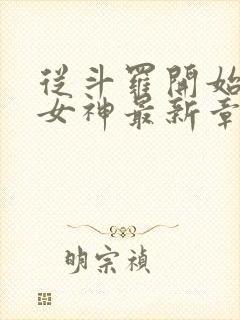 從斗羅開始
女神最新章
明宗禎